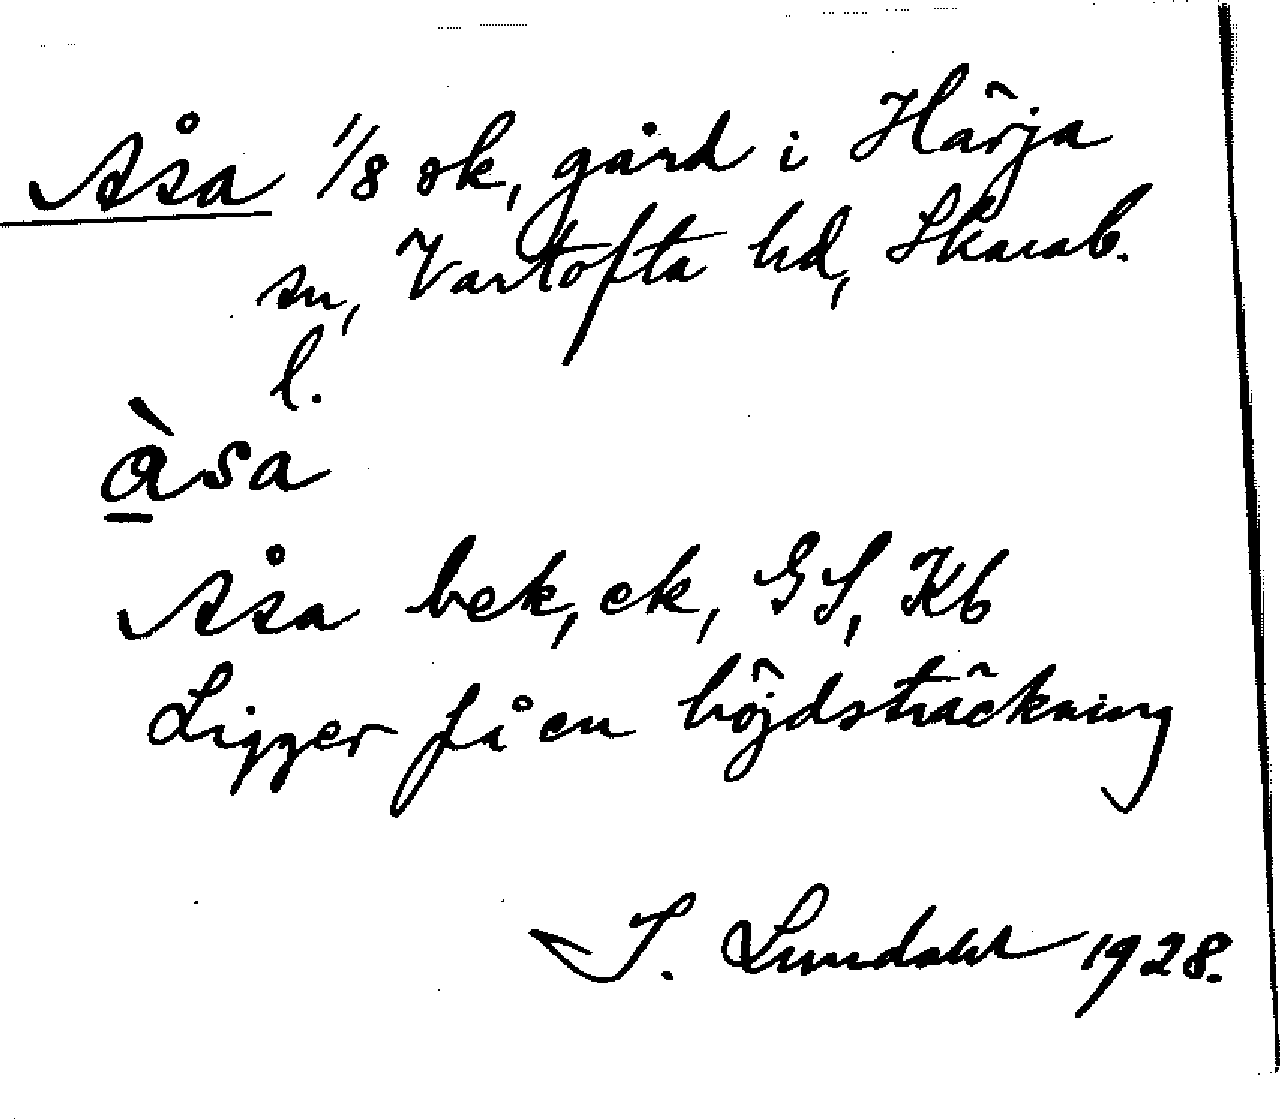 Åsa 1/8 sk, gård i Härja
sn, Vartofta hd, Skarab.
l.
àsa
Åsa bek, ek, GS, Kb
Ligger på en höjdsträckning
I. Lundahl 1928.